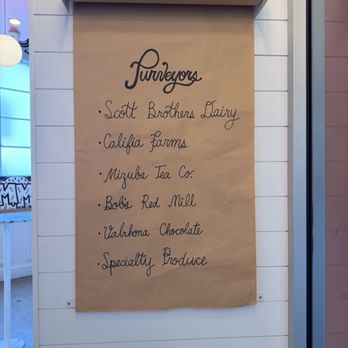 Purveyors
• Scott Brothers Dairy
• Califia Farms
• Mizuba Tea Co.
• Bob's Red Mill
• Valrhona Chocolate
• Specialty Produce